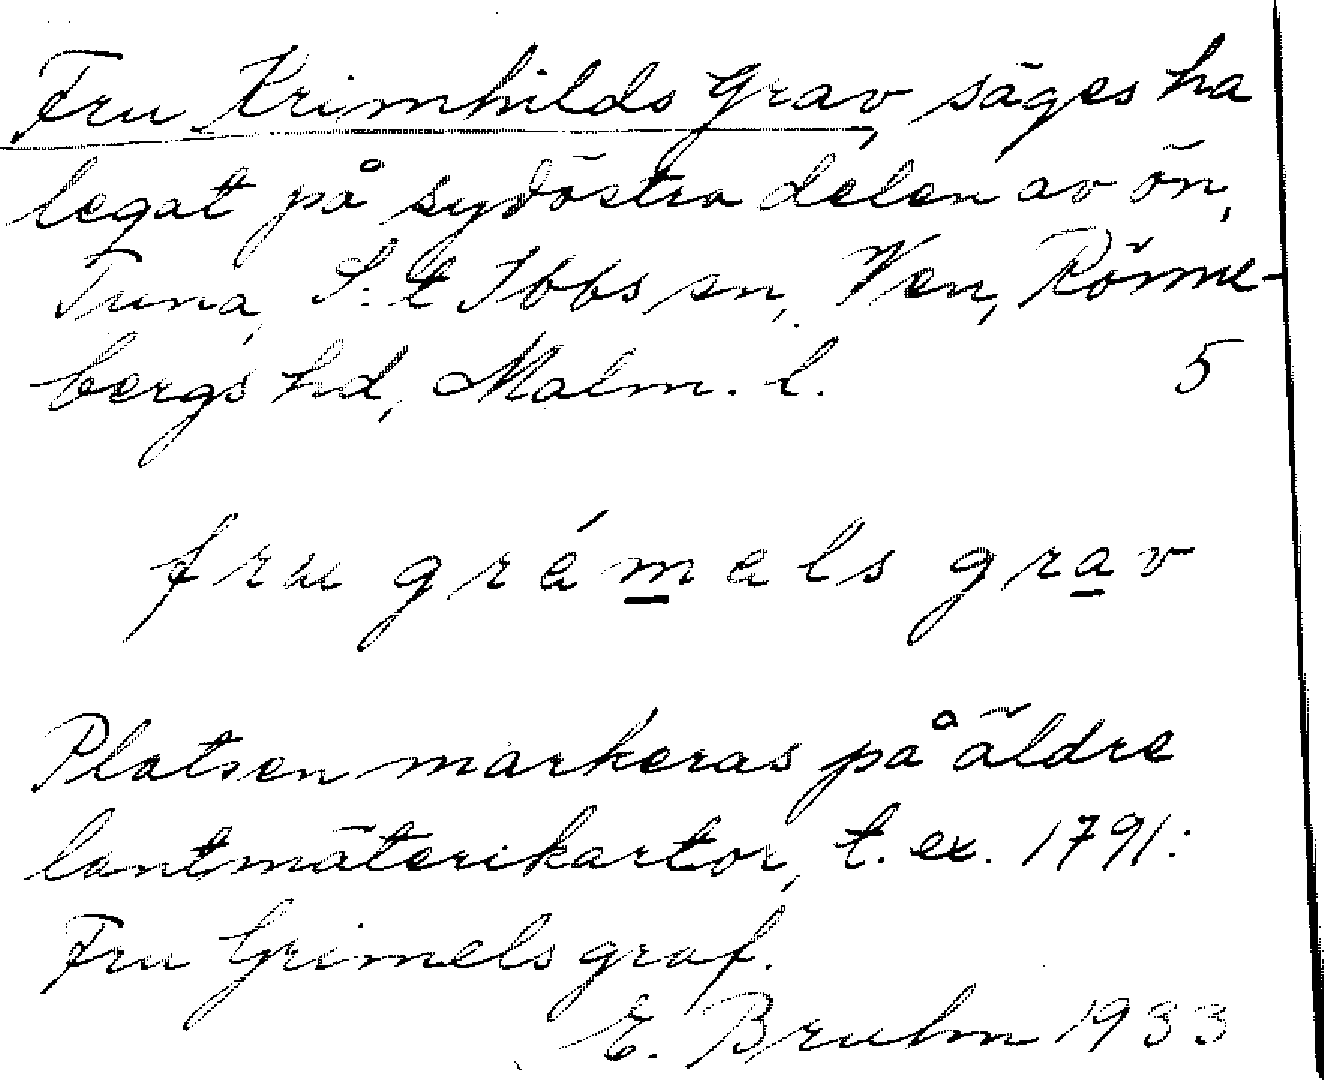 Fru Krimhilds Grav, säges ha
legat på sydöstra delen av ön,
Tuna, S:t Ibbs sn, Ven, Rönne-
bergs hd, Malm. l. 5
fru grémels grav
Platsen markeras på äldre
lantmäterikartor, t. ex. 1791:
Fru Grimels graf.
E. Bruhn 1933